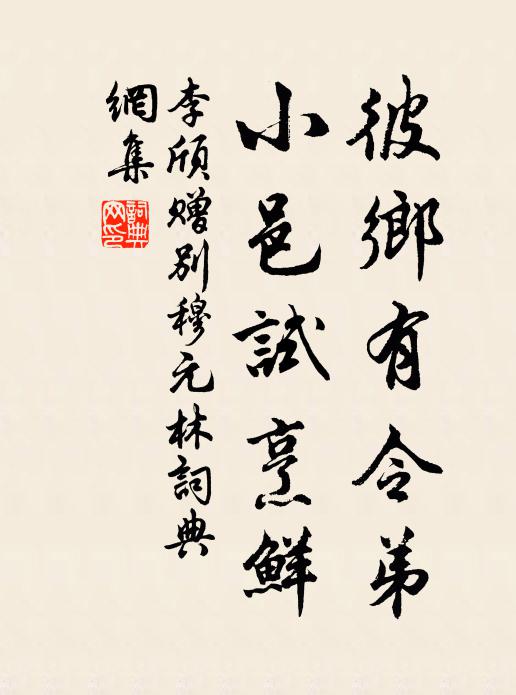 彼鄉有令弟
小邑試烹鮮
李頎贈別穆元林詞典
網集
詞典網印